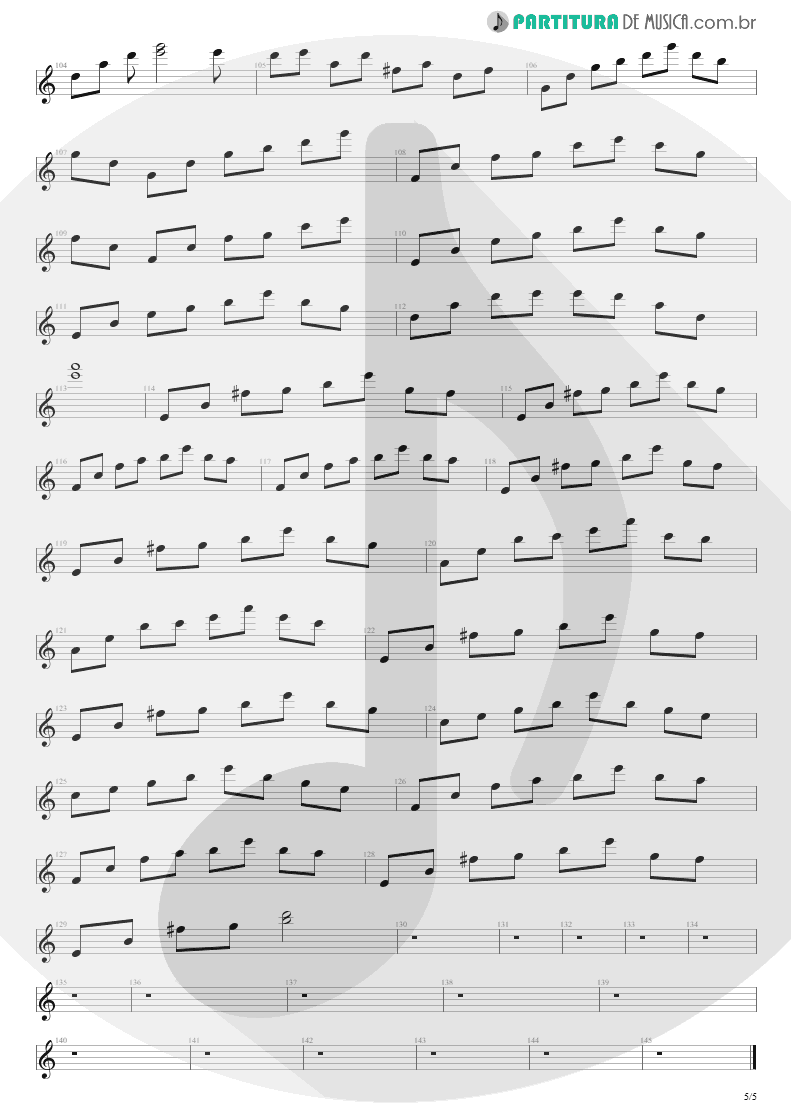 PARTITURA DE MUSICA.com.br
104 105 106
107 108
109 110
111 112
113 114 115
116 117 118
119 120
121 122
123 124
125 126
127 128
129 130 131 132 133 134
135 136 137 138 139
140 141 142 143 144 145
5/5